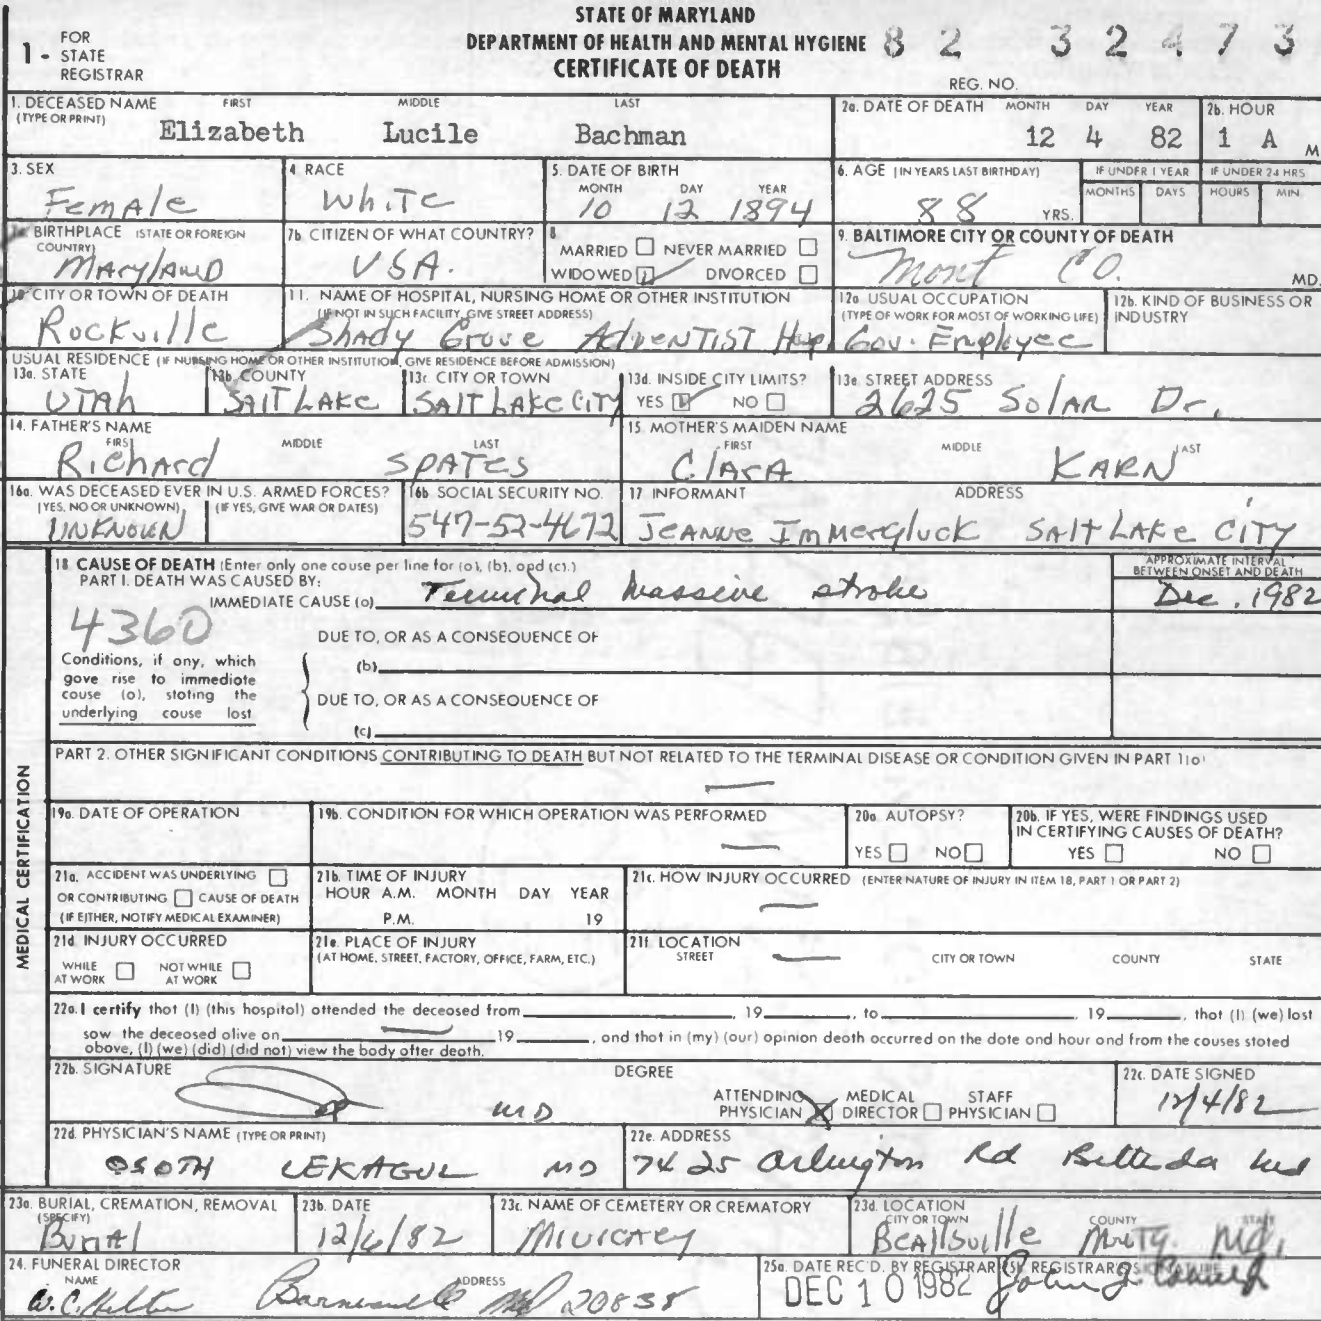 STATE OF MARYLAND
DEPARTMENT OF HEALTH AND MENTAL HYGIENE
CERTIFICATE OF DEATH
1 - FOR STATE REGISTRAR
82 32473
REG. NO.
1. DECEASED NAME (TYPE OR PRINT) FIRST MIDDLE LAST
Elizabeth Lucile Bachman
2a. DATE OF DEATH MONTH DAY YEAR
12 4 82
2b. HOUR
1 A M
3. SEX
Female
4. RACE
White
5. DATE OF BIRTH
MONTH DAY YEAR
10 12 1894
6. AGE (IN YEARS LAST BIRTHDAY)
88 YRS.
IF UNDER 1 YEAR
MONTHS DAYS
IF UNDER 24 HRS
HOURS MIN.
7a. BIRTHPLACE (STATE OR FOREIGN COUNTRY)
Maryland
7b. CITIZEN OF WHAT COUNTRY?
USA.
8
MARRIED NEVER MARRIED
WIDOWED DIVORCED
9. BALTIMORE CITY OR COUNTY OF DEATH
Mont CO. MD.
10 CITY OR TOWN OF DEATH
Rockville
11. NAME OF HOSPITAL, NURSING HOME OR OTHER INSTITUTION
(IF NOT IN SUCH FACILITY, GIVE STREET ADDRESS)
Shady Grove Adventist Hosp.
12a USUAL OCCUPATION
(TYPE OF WORK FOR MOST OF WORKING LIFE)
Gov. Employee
12b. KIND OF BUSINESS OR INDUSTRY
USUAL RESIDENCE (IF NURSING HOME OR OTHER INSTITUTION, GIVE RESIDENCE BEFORE ADMISSION)
13a. STATE
Utah
13b. COUNTY
Salt Lake
13c. CITY OR TOWN
Salt Lake City
13d. INSIDE CITY LIMITS?
YES NO
13e. STREET ADDRESS
2625 Solar Dr.
14. FATHER'S NAME
FIRST MIDDLE LAST
Richard Spates
15. MOTHER'S MAIDEN NAME
FIRST MIDDLE LAST
Clara Karn
16a. WAS DECEASED EVER IN U.S. ARMED FORCES?
(YES, NO OR UNKNOWN) (IF YES, GIVE WAR OR DATES)
Unknown
16b SOCIAL SECURITY NO.
547-52-4672
17 INFORMANT ADDRESS
Jeanne Immergluck Salt Lake City
MEDICAL CERTIFICATION
18 CAUSE OF DEATH (Enter only one cause per line for (a), (b), and (c).)
PART I. DEATH WAS CAUSED BY:
IMMEDIATE CAUSE (a) Terminal Massive stroke
APPROXIMATE INTERVAL BETWEEN ONSET AND DEATH
Dec. 1982
4360
DUE TO, OR AS A CONSEQUENCE OF
(b)
Conditions, if any, which
gave rise to immediate
cause (a), stating the
underlying cause last
DUE TO, OR AS A CONSEQUENCE OF
(c)
PART 2. OTHER SIGNIFICANT CONDITIONS CONTRIBUTING TO DEATH BUT NOT RELATED TO THE TERMINAL DISEASE OR CONDITION GIVEN IN PART 1(a)
19a. DATE OF OPERATION
19b. CONDITION FOR WHICH OPERATION WAS PERFORMED
20a AUTOPSY?
YES NO
20b. IF YES, WERE FINDINGS USED IN CERTIFYING CAUSES OF DEATH?
YES NO
21a. ACCIDENT WAS UNDERLYING
OR CONTRIBUTING CAUSE OF DEATH
(IF EITHER, NOTIFY MEDICAL EXAMINER)
21b. TIME OF INJURY
HOUR A.M. MONTH DAY YEAR
P.M. 19
21c. HOW INJURY OCCURRED (ENTER NATURE OF INJURY IN ITEM 18, PART 1 OR PART 2)
21d. INJURY OCCURRED
WHILE AT WORK NOT WHILE AT WORK
21e. PLACE OF INJURY
(AT HOME, STREET, FACTORY, OFFICE, FARM, ETC.)
21f. LOCATION
STREET CITY OR TOWN COUNTY STATE
22a. I certify that (I) (this hospital) attended the deceased from , 19 , to , 19 , that (I) (we) lost
saw the deceased alive on 19 , and that in (my) (our) opinion death occurred on the date and hour and from the causes stated
above, (I) (we) (did) (did not) view the body after death.
22b. SIGNATURE DEGREE
MD
ATTENDING PHYSICIAN MEDICAL DIRECTOR STAFF PHYSICIAN
22c. DATE SIGNED
12/4/82
22d. PHYSICIAN'S NAME (TYPE OR PRINT)
OSOTH LEKAGUL MD
22e. ADDRESS
7425 Arlington Rd Bethesda Md
23a. BURIAL, CREMATION, REMOVAL (SPECIFY)
Burial
23b. DATE
12/6/82
23c. NAME OF CEMETERY OR CREMATORY
23d. LOCATION
CITY OR TOWN COUNTY STATE
Beallsville Md.
24. FUNERAL DIRECTOR
NAME ADDRESS
W.C. Hilton Barnesville Md 20838
25a. DATE REC'D. BY REGISTRAR
DEC 10 1982
REGISTRAR'S SIGNATURE
John J.